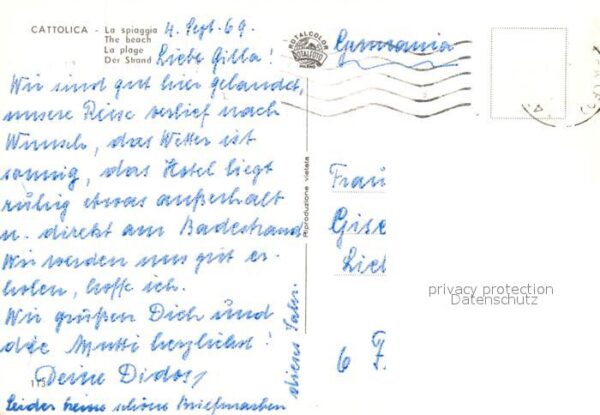 CATTOLICA - La spiaggia
The beach
La plage
Der Strand
4. Sept. 69.
Liebe Gilla!
Wir sind gut hier gelandet,
unsere Reise verlief nach
Wunsch, das Wetter ist
sonnig, das Hotel liegt
ruhig etwas außerhalb
u. direkt am Badestrand
Wir werden uns gut er-
holen, hoffe ich.
Wir grüßen Dich und
die Mutti herzlichst!
Deine Didos,
Leider keine schöne Briefmarken
dieses Jahr.
ROTALCOLOR
ROTALFOTO
Riproduzione vietata
Germania
Frau
Gise
Lie
6 F.
privacy protection
Datenschutz